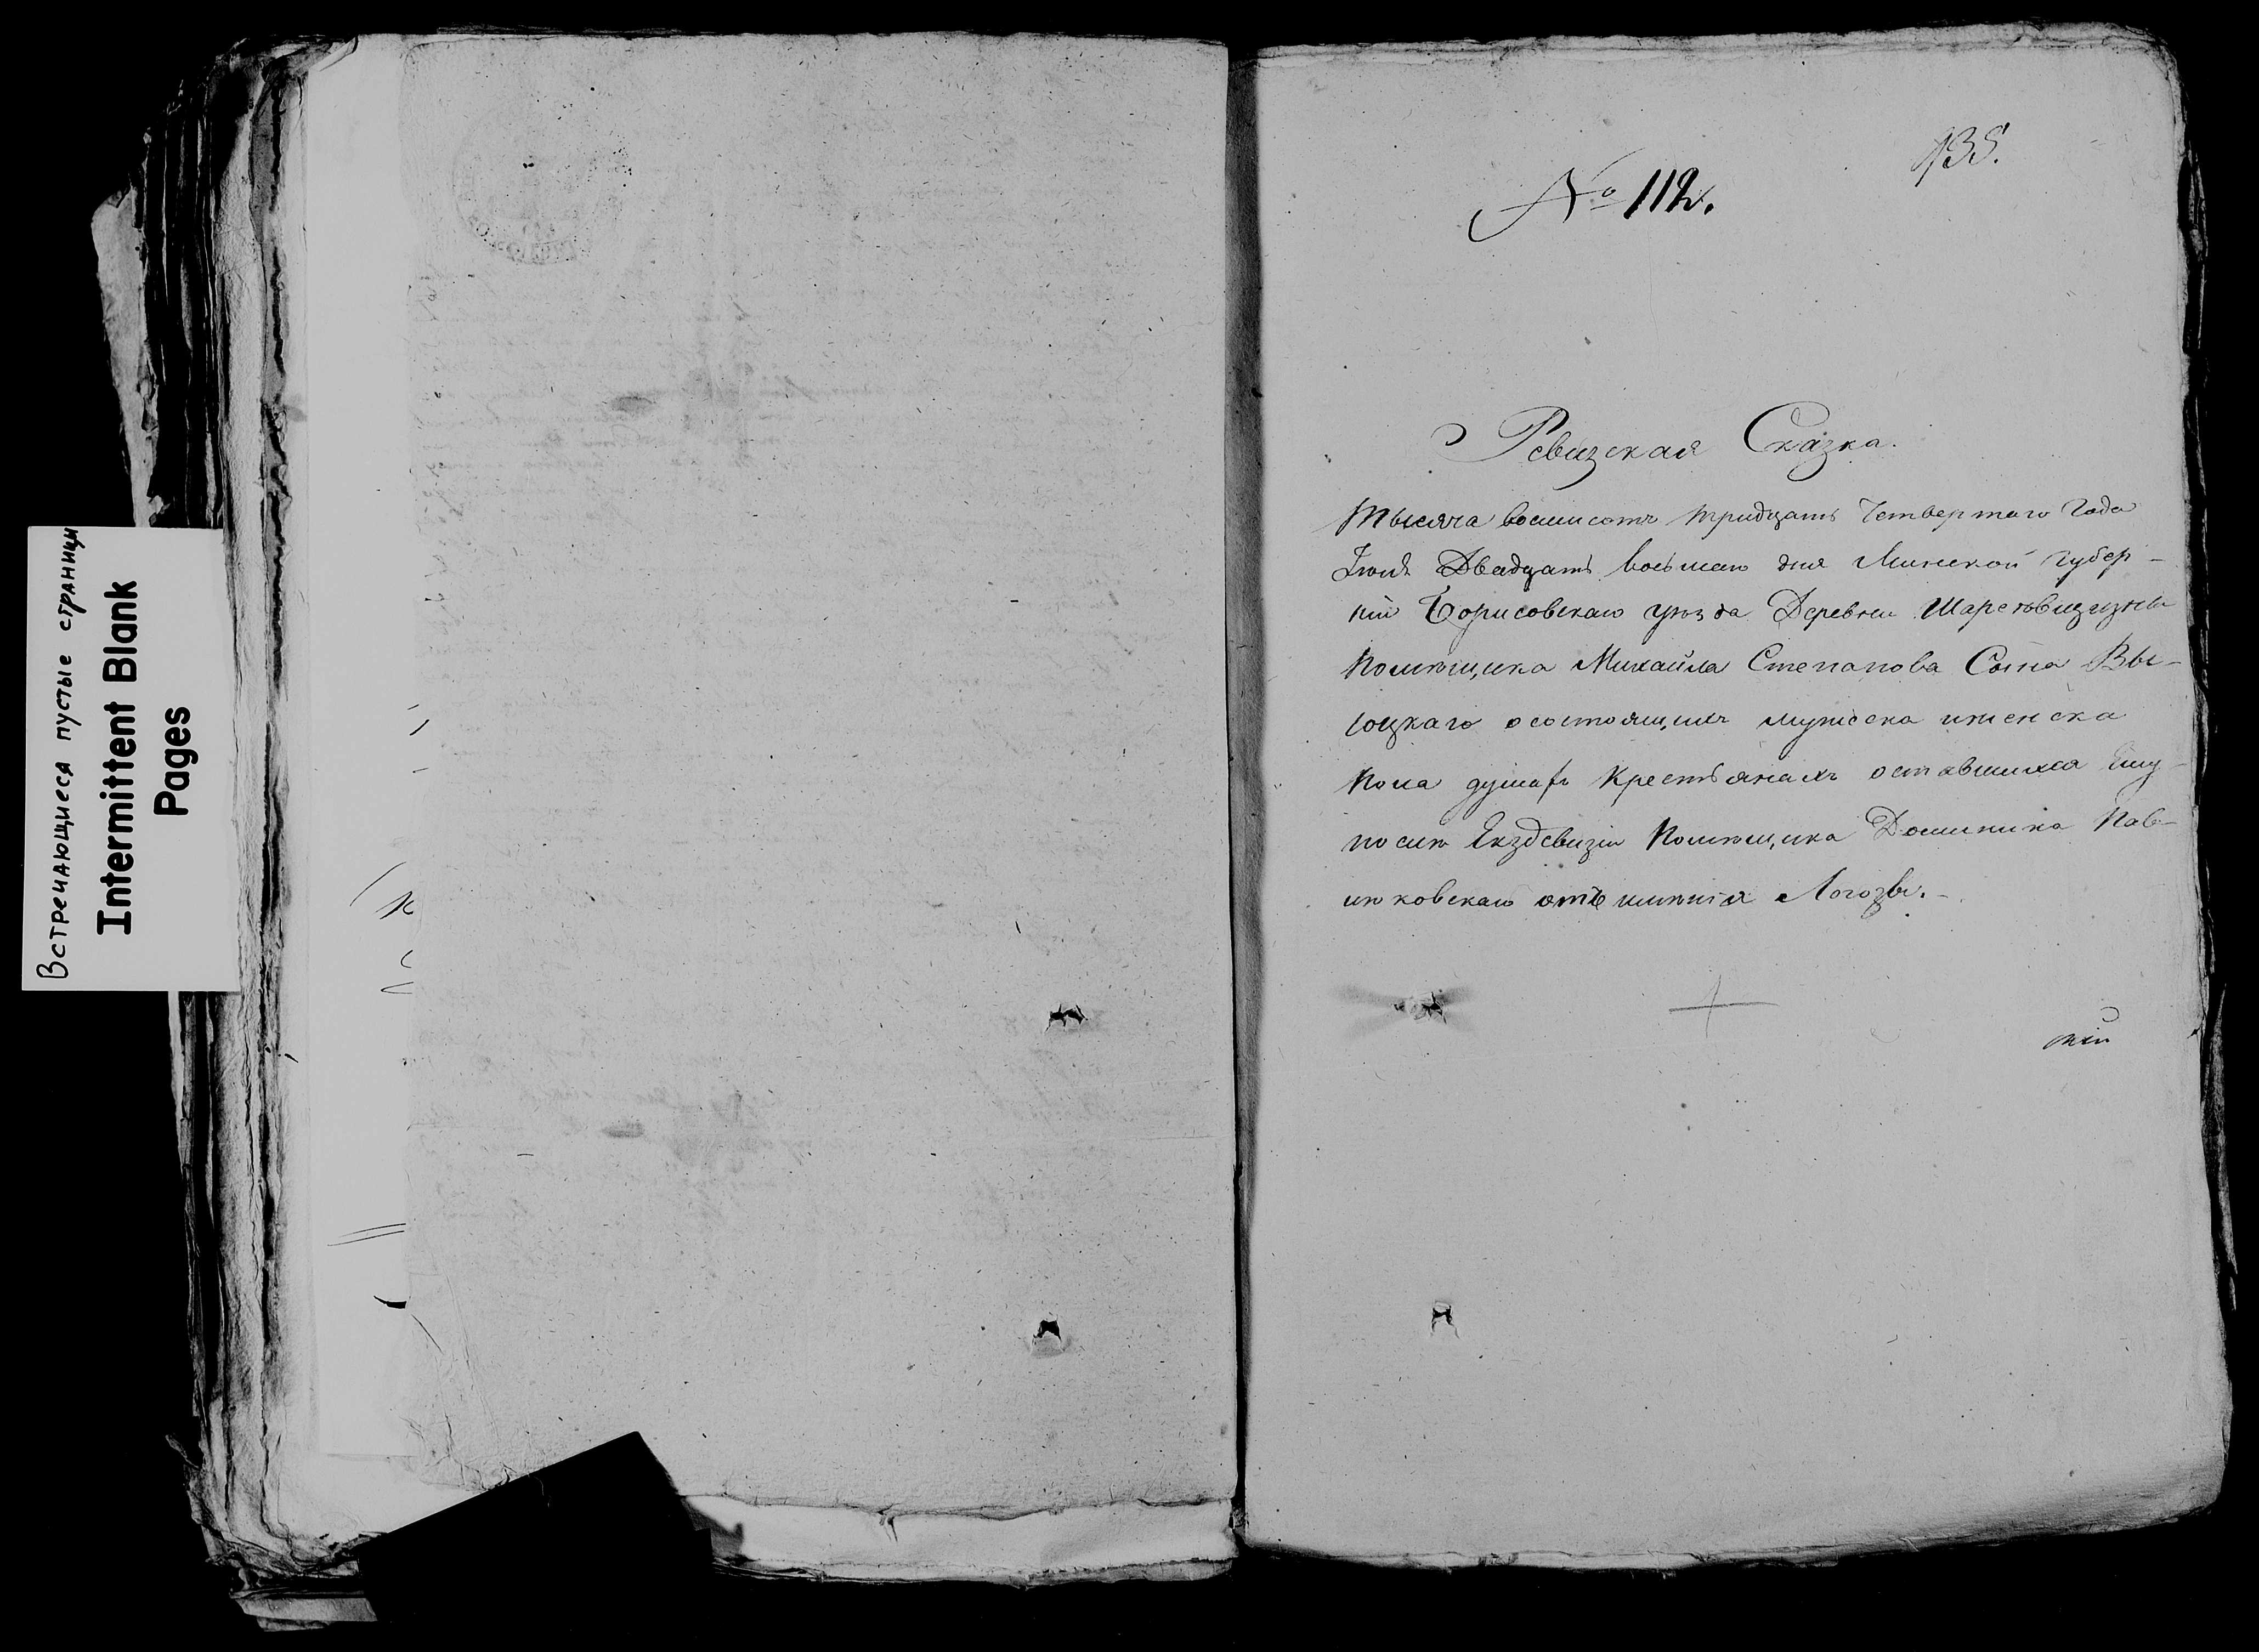 Встречающиеся пустые страницы
Intermittent Blank
Pages
135.
№ 112.
Ревизская Сказка.
Тысяча восемисотъ тридцать Четвертаго Года
Іюня Двадцать восьмаго дня Минской Губер-
ніи Борисовскаго уѣзда Деревни
Помѣщика Михайла Степанова Сына Вы-
соцкаго о состоящихъ мужеска и женска
пола душахъ крестьянахъ оставшихся ему
по Помѣщика Доминика Пав-
ковскаго отъ имѣнія Логозы.-